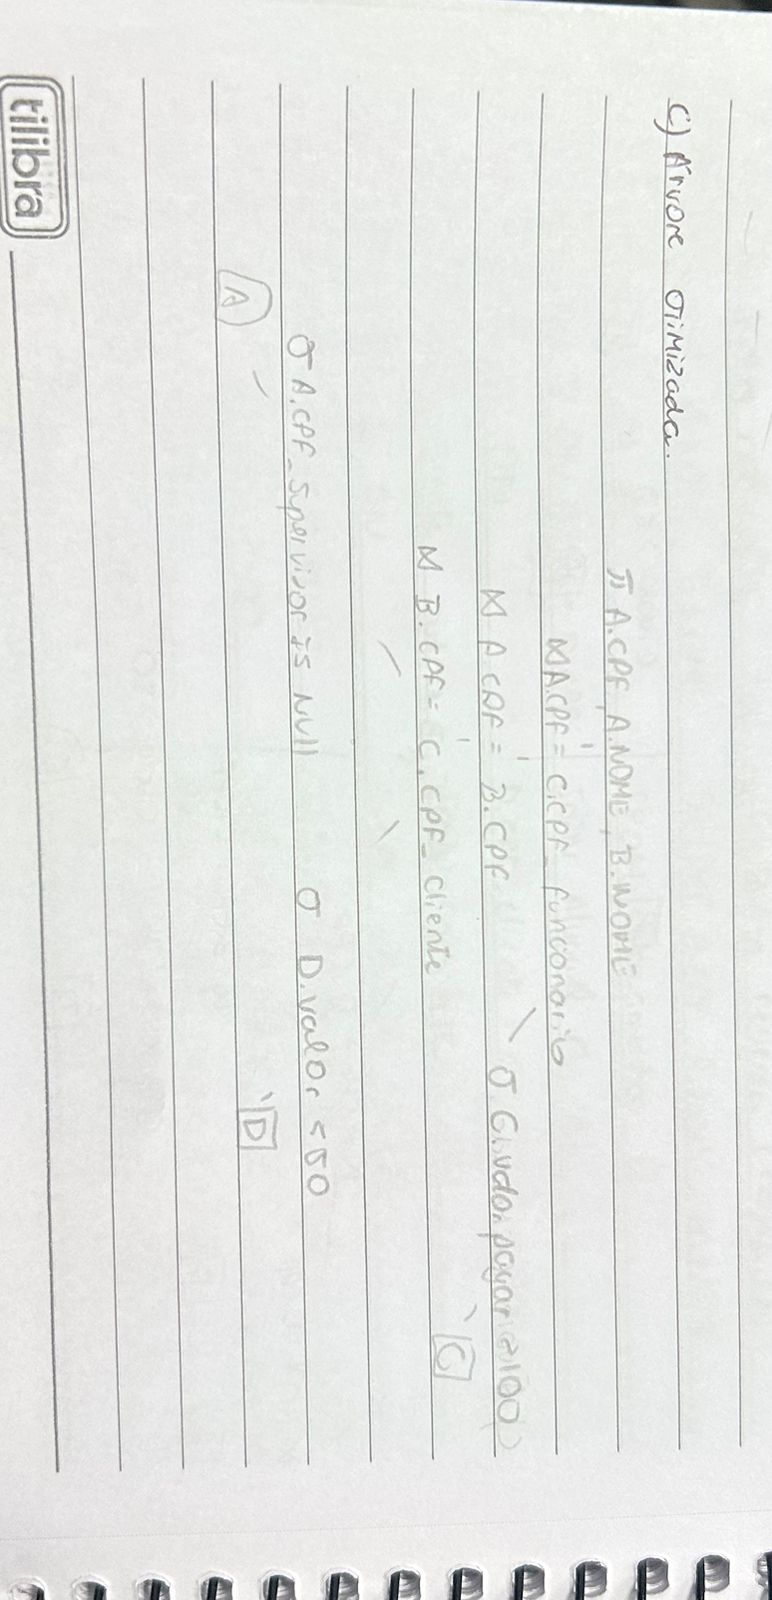 C) Árvore Otimizada.
π A.CPF, A.NOME, B.NOME
⋈ A.CPF = C.CPF_funconario
⋈ A.CPF = B.CPF
σ C.valor pagar 100
⋈ B.CPF = C.CPF_cliente
C
σ A.CPF_Supervisor is Null σ D.valor < 50
A D
tilibra